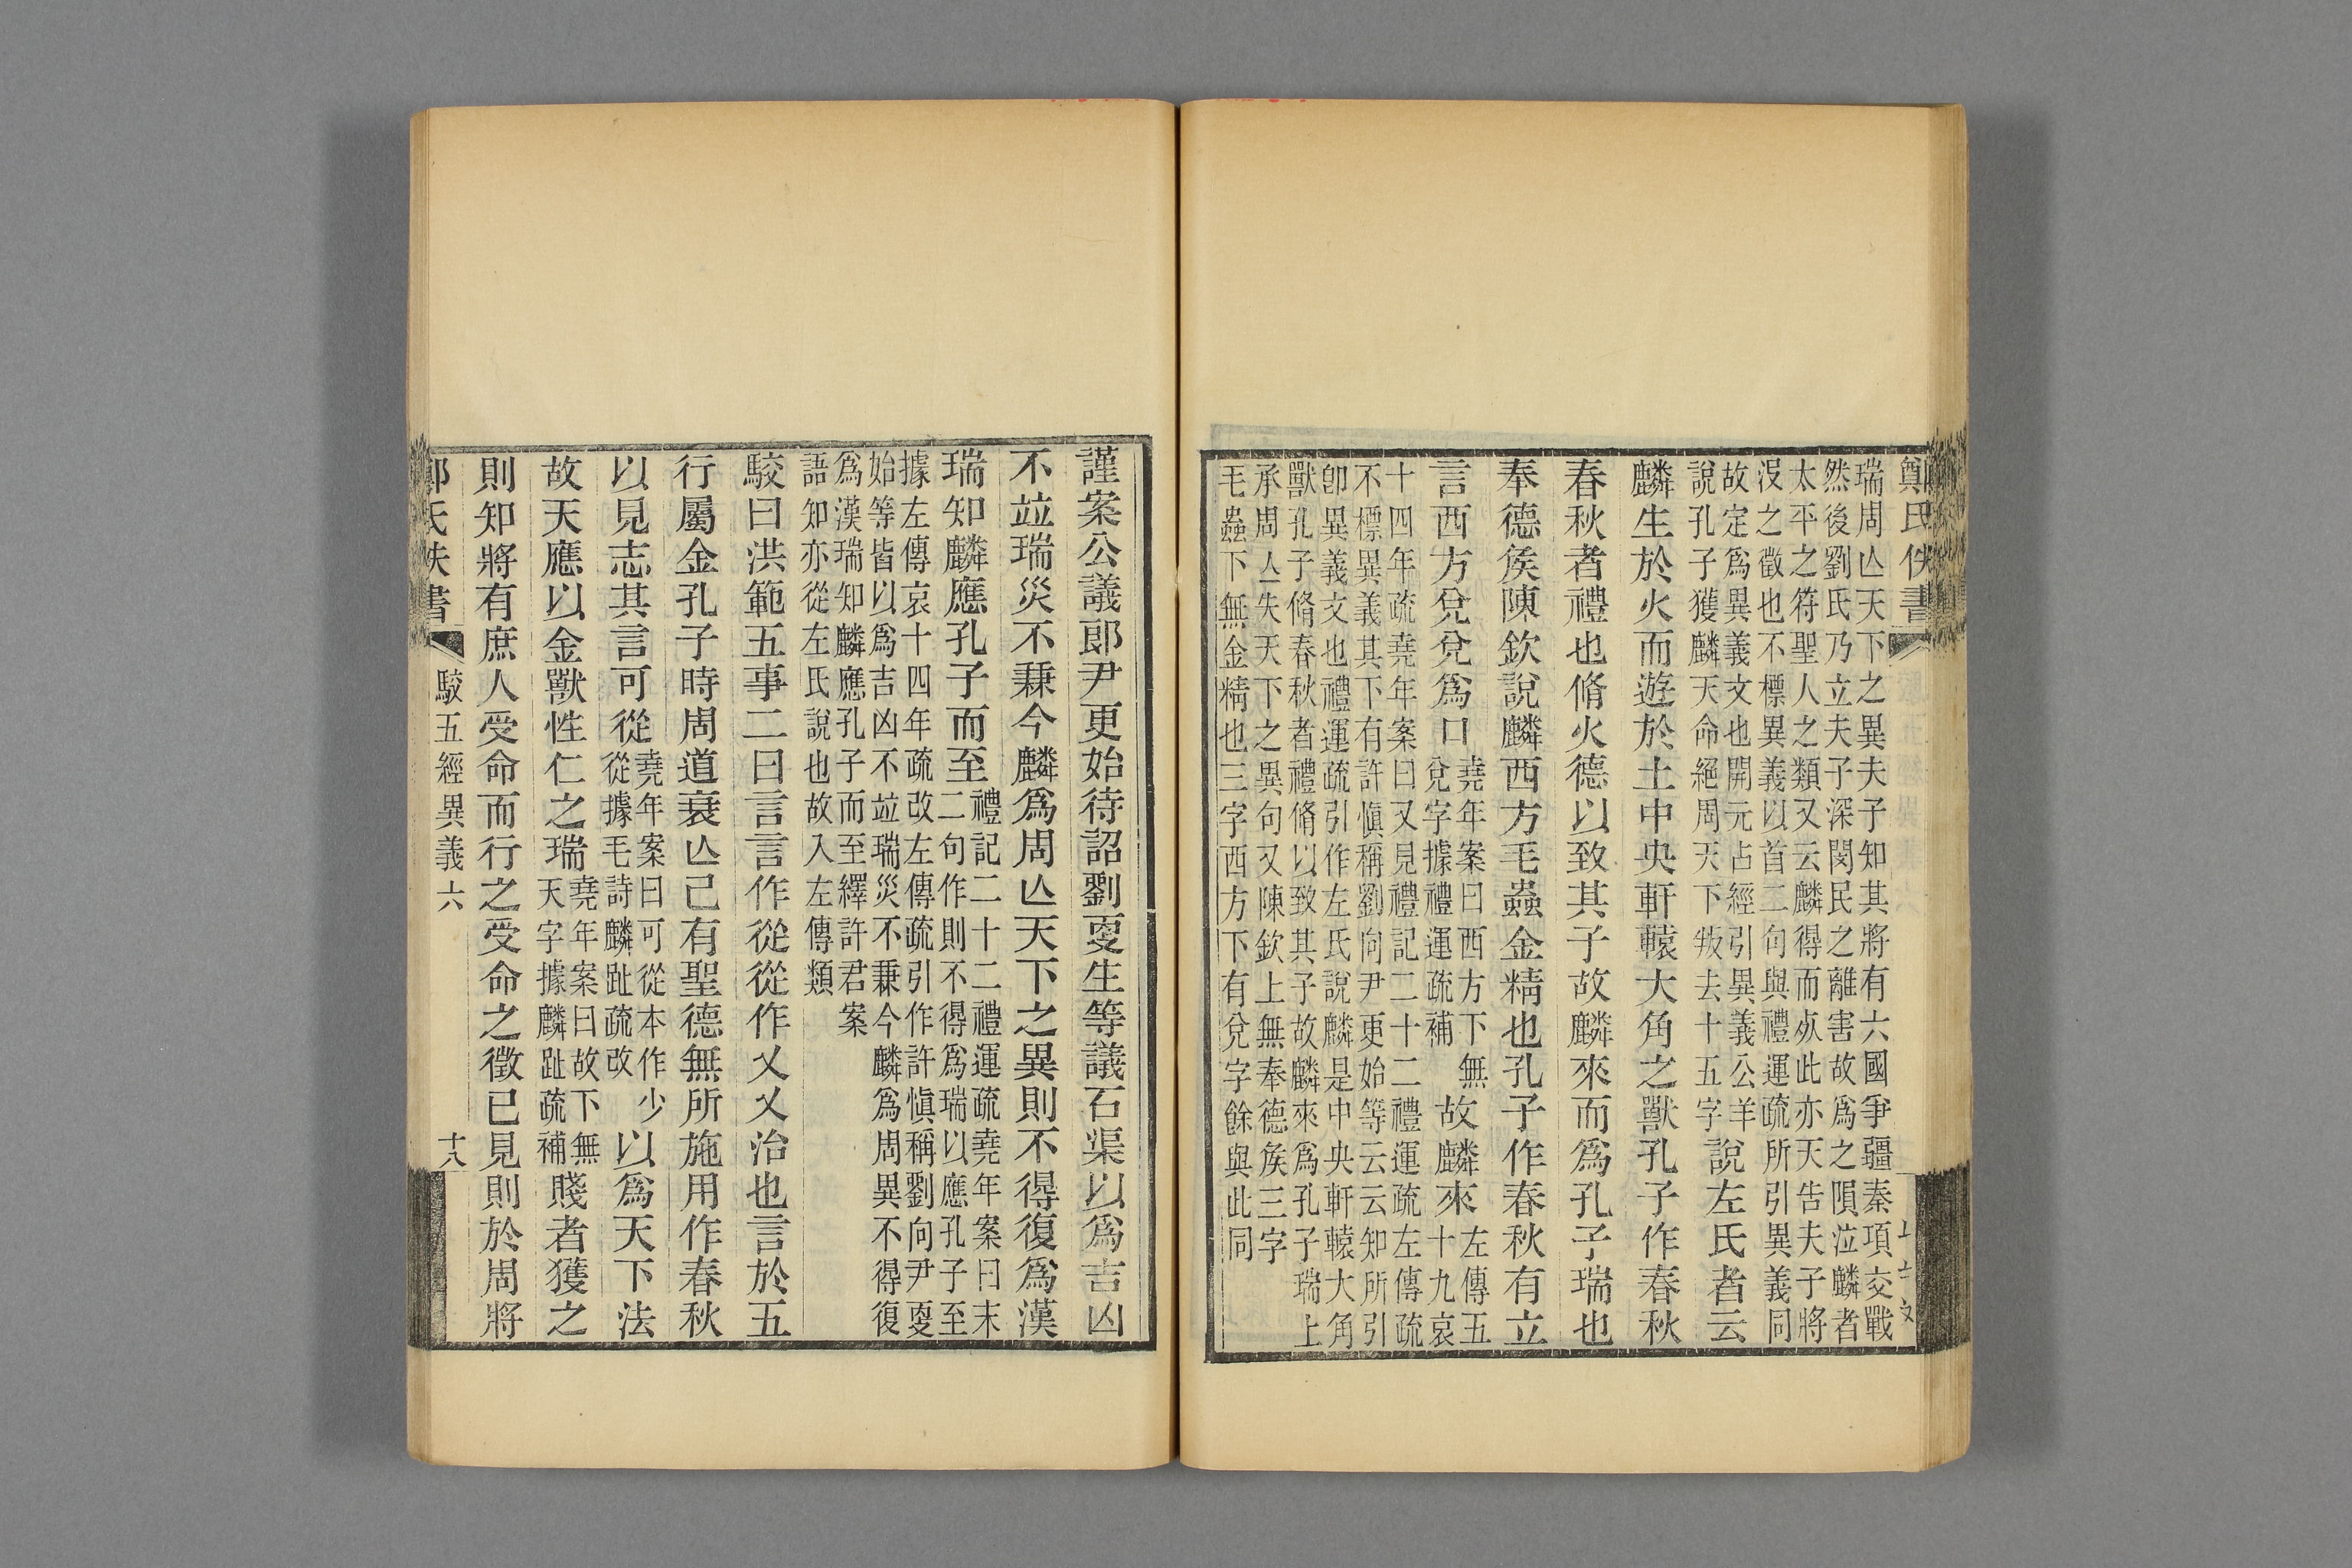 鄭氏佚書
瑞周亾天下之異夫子知其將有六國爭疆秦項交戰
然後劉氏乃立夫子深閔民之離害故爲之隕泣麟者
太平之符聖人之類又云麟得而死此亦天告夫子將
沒之徵也不標異義以首二句與禮運疏所引異義同
故定爲異義文也開元占經引異義公羊
說孔子獲麟天命絕周天下叛去十五字
說左氏者云
麟生於火而遊於土中央軒轅大角之獸孔子作春秋
春秋者禮也脩火德以致其子故麟來而爲孔子瑞也
奉德矦陳欽說麟西方毛蟲金精也孔子作春秋有立
言西方兌兌爲口
堯年案曰西方下無
兌字據禮運疏補
故麟來
左傳五十九哀
十四年疏堯年案曰又見禮記二十二禮運疏左傳疏
不標異義其下有許愼稱劉向尹更始等云云知所引
卽異義文也禮運疏引作左氏說麟是中央軒轅大角
獸孔子脩春秋者禮脩以致其子故麟來爲孔子瑞上
承周亾失天下之異句又陳欽上無奉德矦三字
毛蟲下無金精也三字西方下有兌字餘與此同
謹案公議郎尹更始待詔劉㪅生等議石渠以爲吉凶
不竝瑞災不兼今麟爲周亾天下之異則不得復爲漢
瑞知麟應孔子而至
禮記二十二禮運疏堯年案曰末
二句作則不得爲瑞以應孔子至
據左傳哀十四年疏改左傳疏引作許愼稱劉向尹㪅
始等皆以爲吉凶不竝瑞災不兼今麟爲周異不得復
爲漢瑞知麟應孔子而至繹許君案
語知亦從左氏說也故入左傳類
駮曰洪範五事二曰言言作從從作乂乂治也言於五
行屬金孔子時周道衰亾己有聖德無所施用作春秋
以見志其言可從
堯年案曰可從本作少
從據毛詩麟趾疏改
以爲天下法
故天應以金獸性仁之瑞
堯年案曰故下無
天字據麟趾疏補
賤者獲之
則知將有庶人受命而行之受命之徵已見則於周將
駮五經異義六
十八